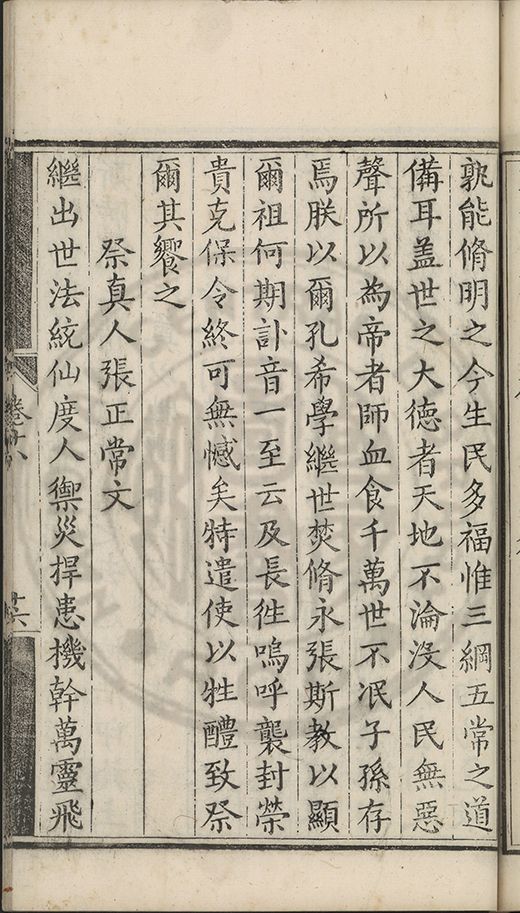 孰能脩明之今生民多福惟三綱五常之道
備耳盖世之大德者天地不淪沒人民無惡
聲所以為帝者師血食千萬世不泯子孫存
焉朕以爾孔希學繼世焚脩永張斯教以顯
爾祖何期訃音一至云及長徃嗚呼襲封榮
貴克保令終可無憾矣特遣使以牲醴致祭
爾其饗之
祭真人張正常文
繼出世法統仙度人禦災捍患機幹萬靈飛
卷十六
十六